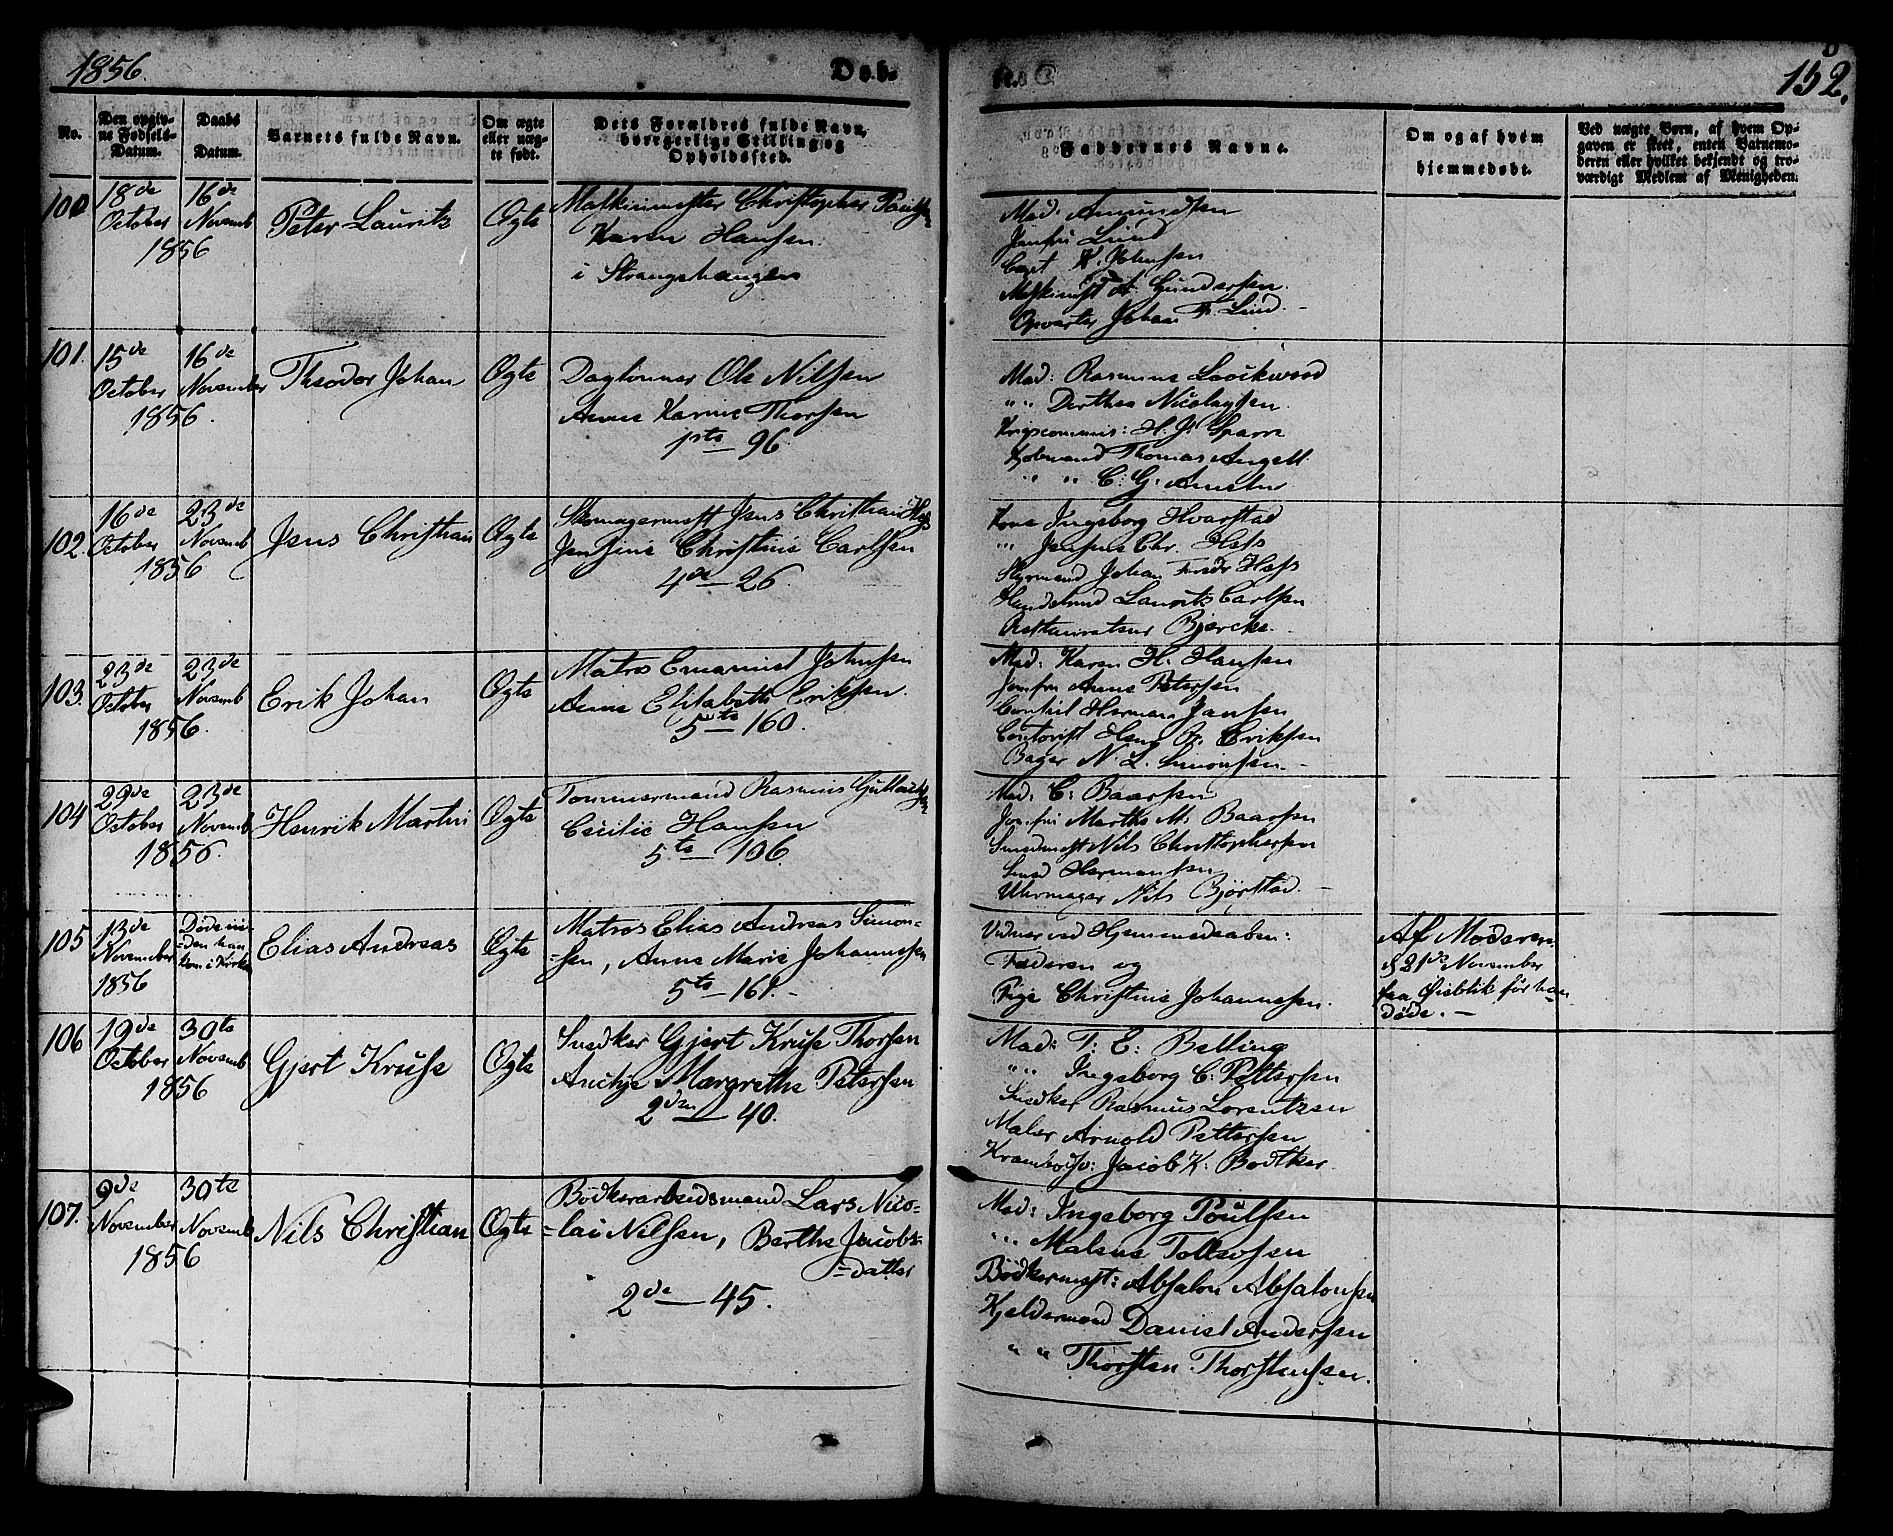 1856.
Døb-
152.
No.
Den opgiv-
ne Fødsels-
Datum.
Daabs
Datum.
Barnets fulde Navn.
Om ægte
eller uæg-
te født.
Dets Forældres fulde Navn,
borgerlige Stilling og
Opholdssted.
Faddernes Navne.
Om og af hvem
hjemmedøbt.
Ved uægte Børn, af hvem Op-
gaven er skeet, enten Barnemo-
deren eller hvilket bekjendt og tro-
værdigt Medlem af Menigheden.
100
18de
October
1856
16de
Novemb
Peter Lauritz
Ægte
Maskinmester Christopher Paulsen
Karen Hansen.
i Strangehaugen
Mad. Amundsen
Jomfru Lund
Capt K. Johnsen
Maskinmst A. Gundersen.
Opvarter Johan F. Lund.-
101.
15de
October
1856.
16de
November
Theodor Johan
Ægte
Daglønner Ole Nilsen
Anne Karine Thorsen
1ste - 96.
Mad: Rasmine Loockwood
" " Dorthea Nicolaysen.
Krigscommis: H. J. Sparre
Kjøbmand Thomas Angell.
" " C: G. 
102.
16de
October
1856
23de
Novemb
Jens Christian
Ægte
Skomagermest Jens Christian Hess
Jensine Christine Carlsen
4de - 26.
Kone Ingeborg Hvarstad
" Jensine Chr. Hess
Styrmand Johan Fredr Hess
Handelsmd Lauritz Carlsen
Restaurateur Bjercke.
103.
23de
October
1856.
23de
Novemb
Erik Johan
Ægte
Matros Emanuel Johnsen
Anne Elisabeth Eriksen.
5te - 160.
Mad: Karen H. Hansen
Jomfru Anne Petersen
Herman Jansen
Contorist Eriksen
Bager N. L. Simonsen.-
104
29de
October
1856.
23de
Novemb
Henrik Martin
Ægte
Tømmermand Rasmus
Cecilie Hansen
5te - 106.
Mad. C: Baarsen
Jomfru Marthe M. Baarsen
Smedmest Nils Christophersen
Smed Hermansen
Uhrmager Nils Bjørstad.-
105
13de
November
1856
Døde in-
-den han
kom i Kirke
Elias Andreas
Ægte
Matros Elias Andreas Simon-
-sen, Anne Marie Johannessen
5te - 161.-
Vidner ved Hjemmedaaben:
Faderen og
Pige Christine Johannesen.
Af Moderen
d 21de November
faa Øieblik før han
døde.-
106
19de
October
1856
30te
Novemb
Gjert Kruse
Ægte
Snedker Gjert Kruse Thorsen
Anchje Margrethe Petersen
2den - 40.
Mad: T: E: Belling
" " Ingeborg C: Pettersen
Snedker Rasmus Lorentzen
Maler Arnold Pettersen
Krambodsv: Jacob K. Bødtker.
107.
9de
November
1856
30te
Novemb
Nils Christian
Ægte
Bødkerarbeidsmand Lars Nico-
-lai Nilsen, Berthe Jacobs-
-datter
2de - 45.
Mad: Ingeborg Poulsen
" " Malene Tollevsen
Bødkermest: Absalon Absalonsen
Kjeldermand Daniel Andersen
" " Thorsten Thorstensen.